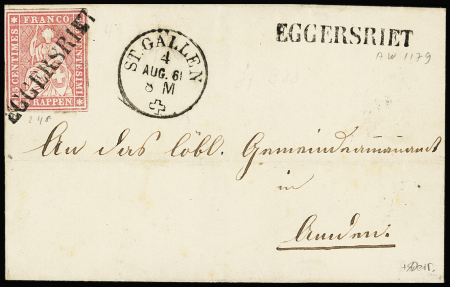 FRANCO
CENTESIMI
RAPPEN
EGGERSRIET
ST. GALLEN
4
AUG. 61
8 M
EGGERSRIET
AW 1179
24B
An das löbl. Gemeindeammannamt
in
Amden.